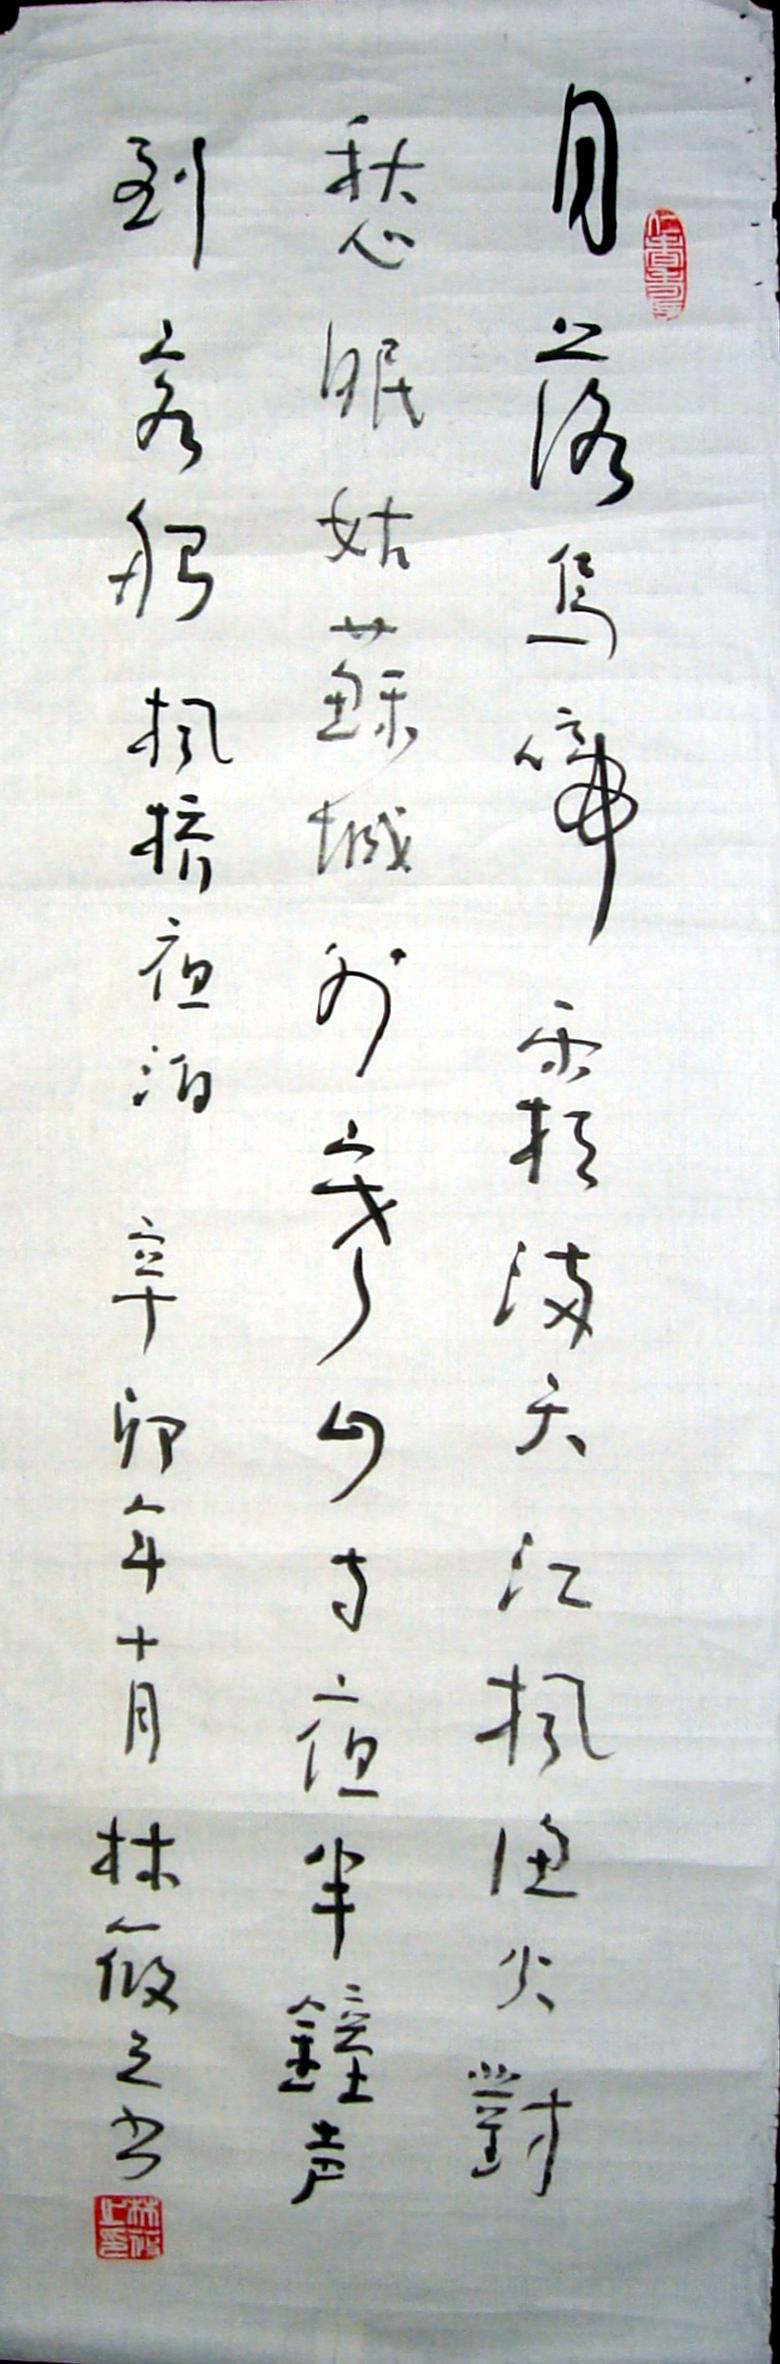 月落烏啼霜满天江枫渔火對
愁眠姑蘇城外寒山寺夜半鐘声
到客船枫桥夜泊辛卯年十月林筱之书
林筱之印